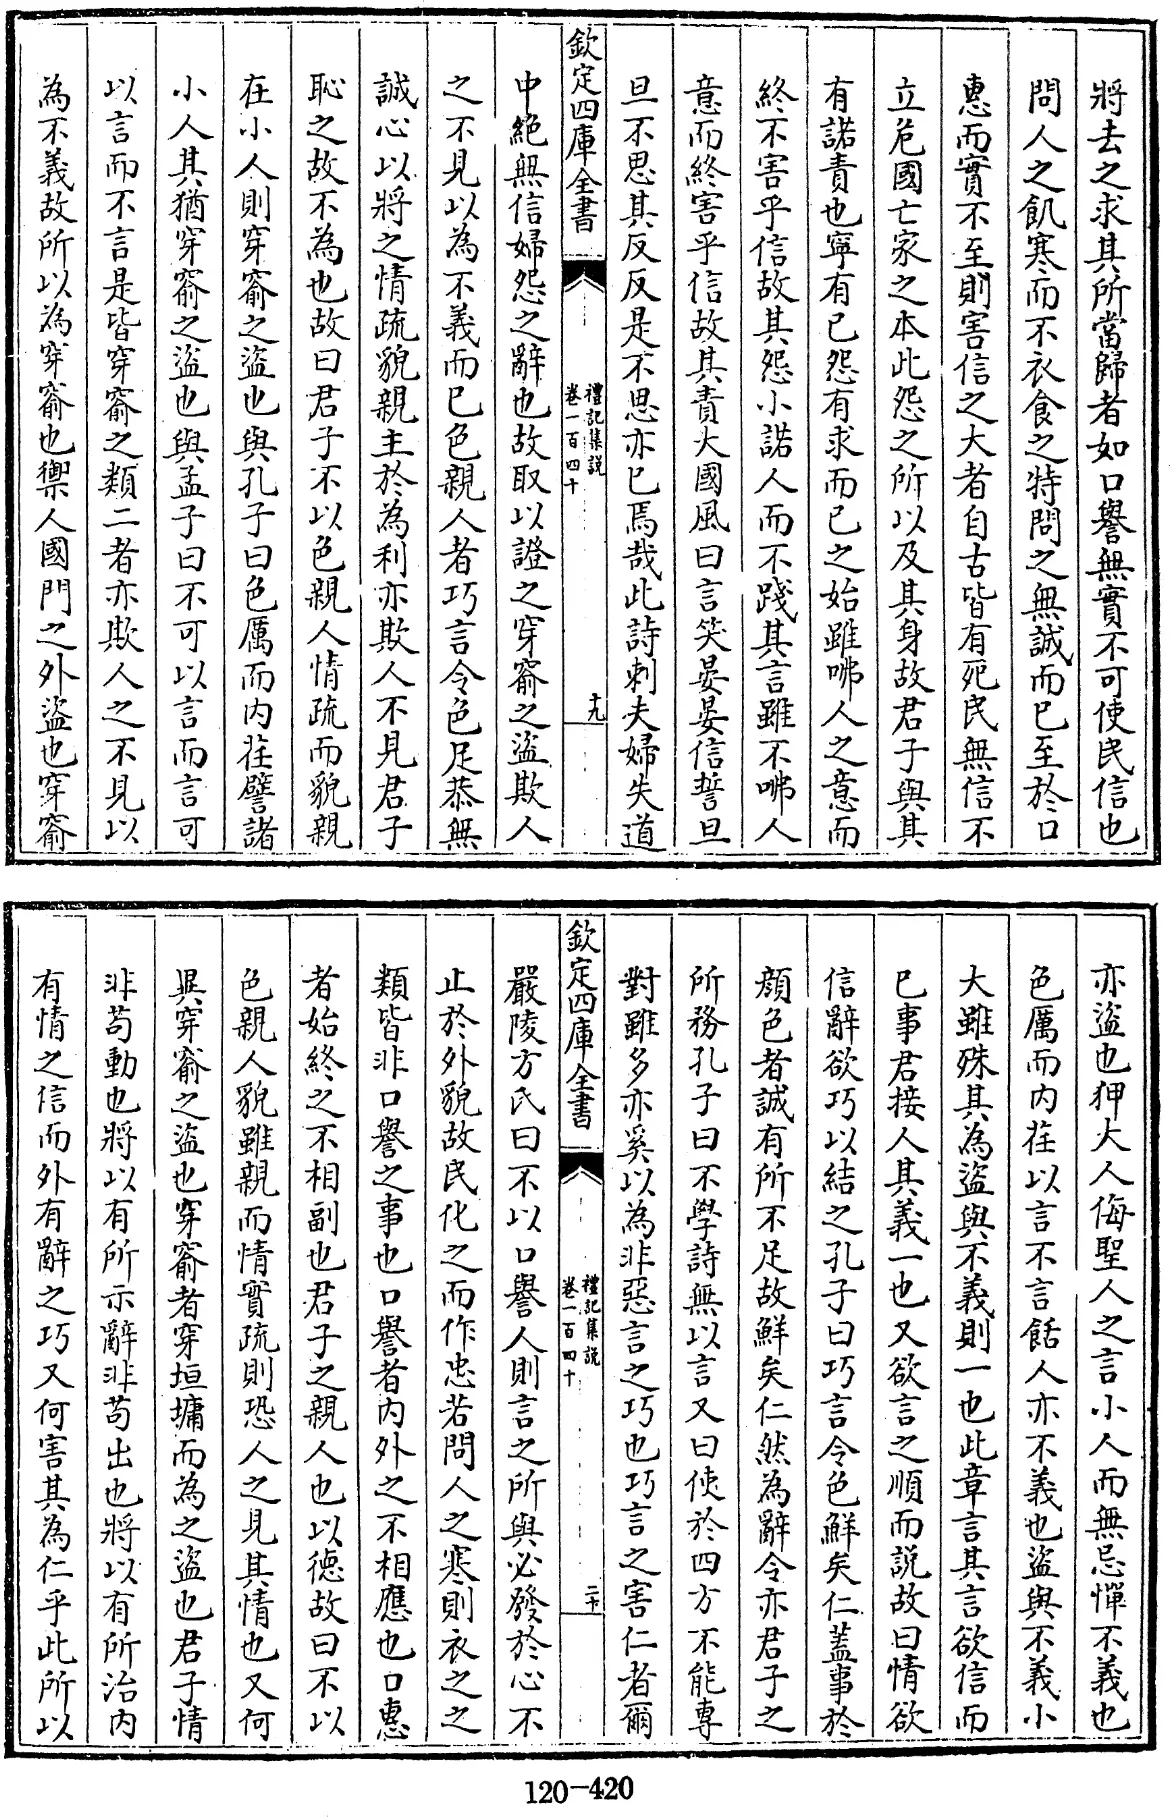 將去之求其所當歸者如口譽無實不可使民信也
問人之飢寒而不衣食之特問之無誠而已至於口
惠而實不至則害信之大者自古皆有死民無信不
立危國亡家之本此怨之所以及其身故君子與其
有諾責也寧有已怨有求而已之始雖咈人之意而
終不害乎信故其怨小諾人而不踐其言雖不咈人
意而終害乎信故其責大國風曰言笑晏晏信誓旦
旦不思其反反是不思亦已焉哉此詩刺夫婦失道
欽定四庫全書
禮記集說
卷一百四十
十九
中絕無信婦怨之辭也故取以證之穿窬之盜欺人
之不見以為不義而已色親人者巧言令色足恭無
誠心以將之情疏貌親主於為利亦欺人不見君子
恥之故不為也故曰君子不以色親人情疏而貌親
在小人則穿窬之盜也與孔子曰色厲而內荏譬諸
小人其猶穿窬之盜也與孟子曰不可以言而言可
以言而不言是皆穿窬之類二者亦欺人之不見以
為不義故所以為穿窬也禦人國門之外盜也穿窬
亦盜也狎大人侮聖人之言小人而無忌憚不義也
色厲而內荏以言不言餂人亦不義也盜與不義小
大雖殊其為盜與不義則一也此章言其言欲信而
已事君接人其義一也又欲言之順而說故曰情欲
信辭欲巧以結之孔子曰巧言令色鮮矣仁蓋事於
顏色者誠有所不足故鮮矣仁然為辭令亦君子之
所務孔子曰不學詩無以言又曰使於四方不能專
對雖多亦奚以為非惡言之巧也巧言之害仁者爾
欽定四庫全書
禮記集說
卷一百四十
二十
嚴陵方氏曰不以口譽人則言之所與必發於心不
止於外貌故民化之而作忠若問人之寒則衣之之
類皆非口譽之事也口譽者內外之不相應也口惠
者始終之不相副也君子之親人也以德故曰不以
色親人貌雖親而情實疏則恐人之見其情也又何
異穿窬之盜也穿窬者穿垣墉而為之盜也君子情
非苟動也將以有所示辭非苟出也將以有所治內
有情之信而外有辭之巧又何害其為仁乎此所以
120-420